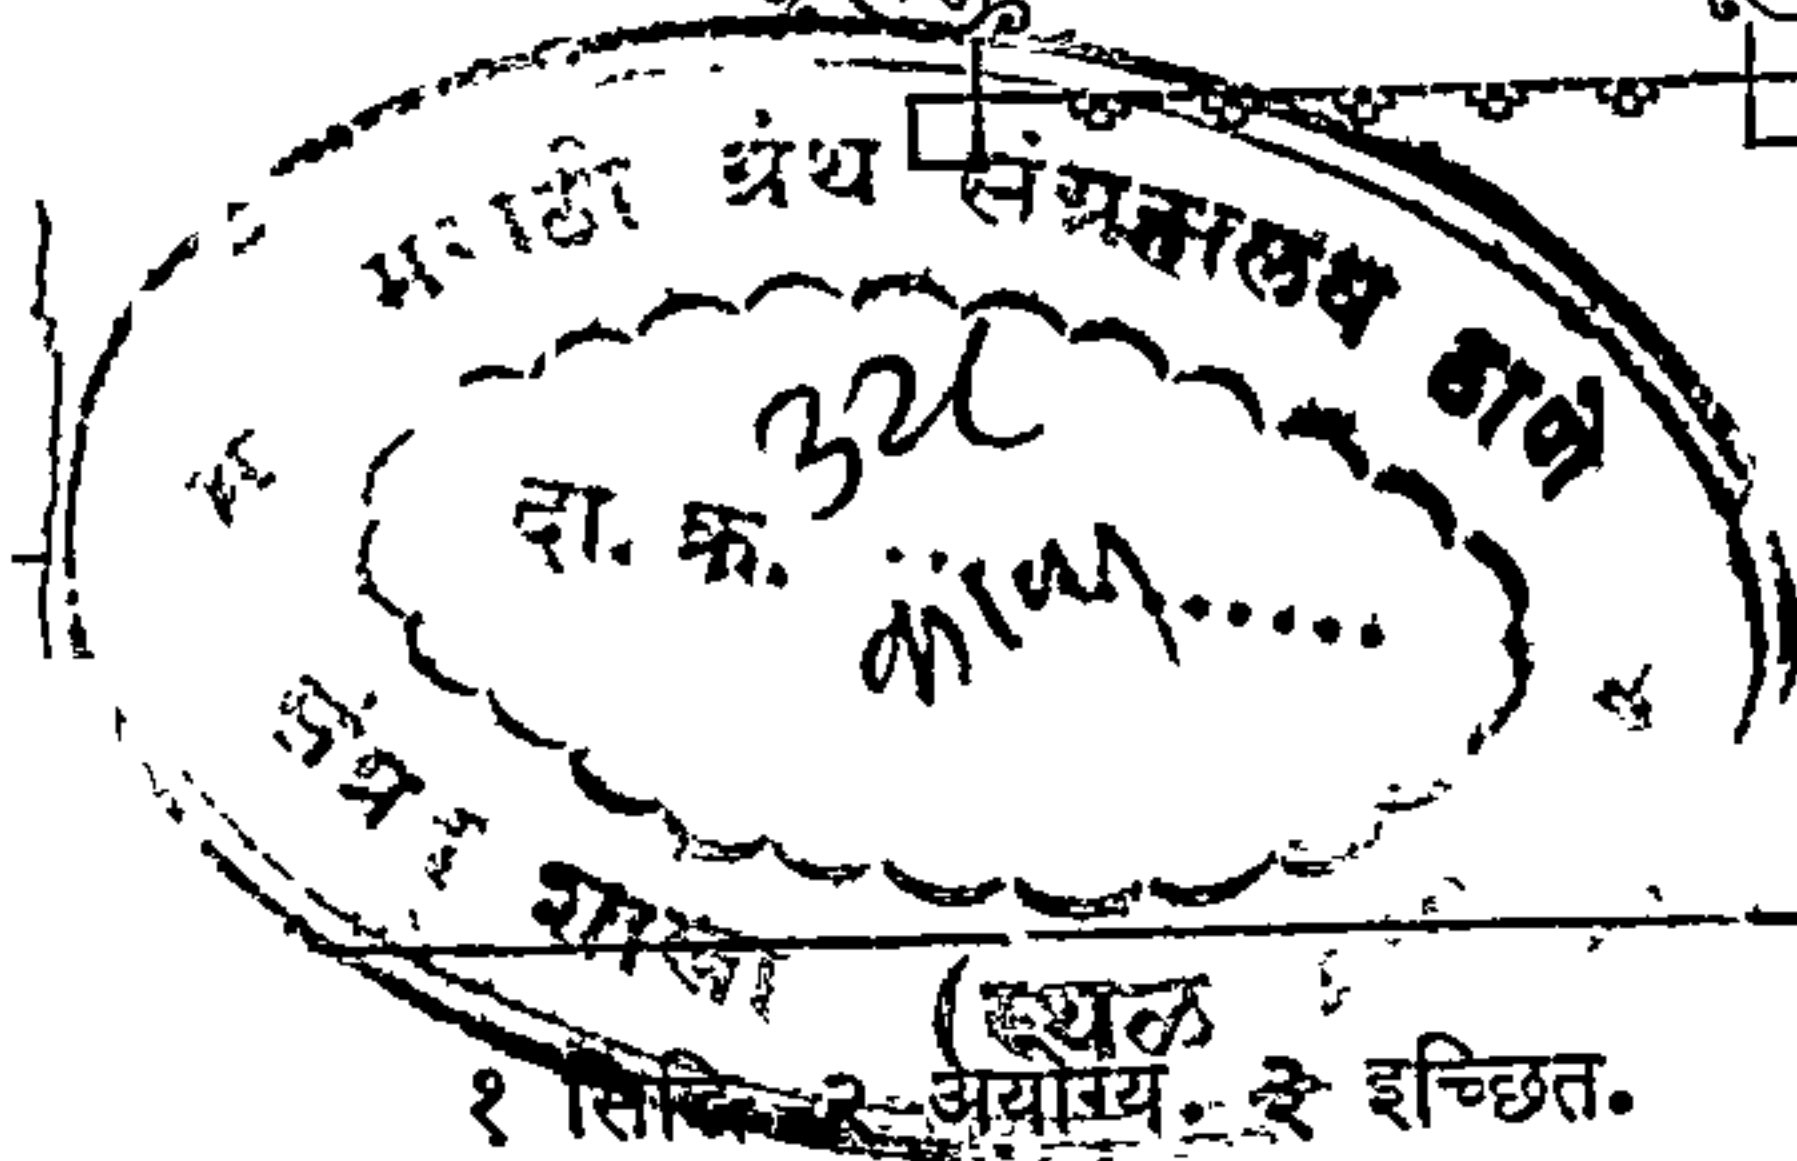 मराठी ग्रंथ संग्रहालय ठाणे
दा. क्र. ३२८
काव्य
शाखा
(स्थळ
१ सिद्धि. २ अयोग्य. ३ इच्छित.